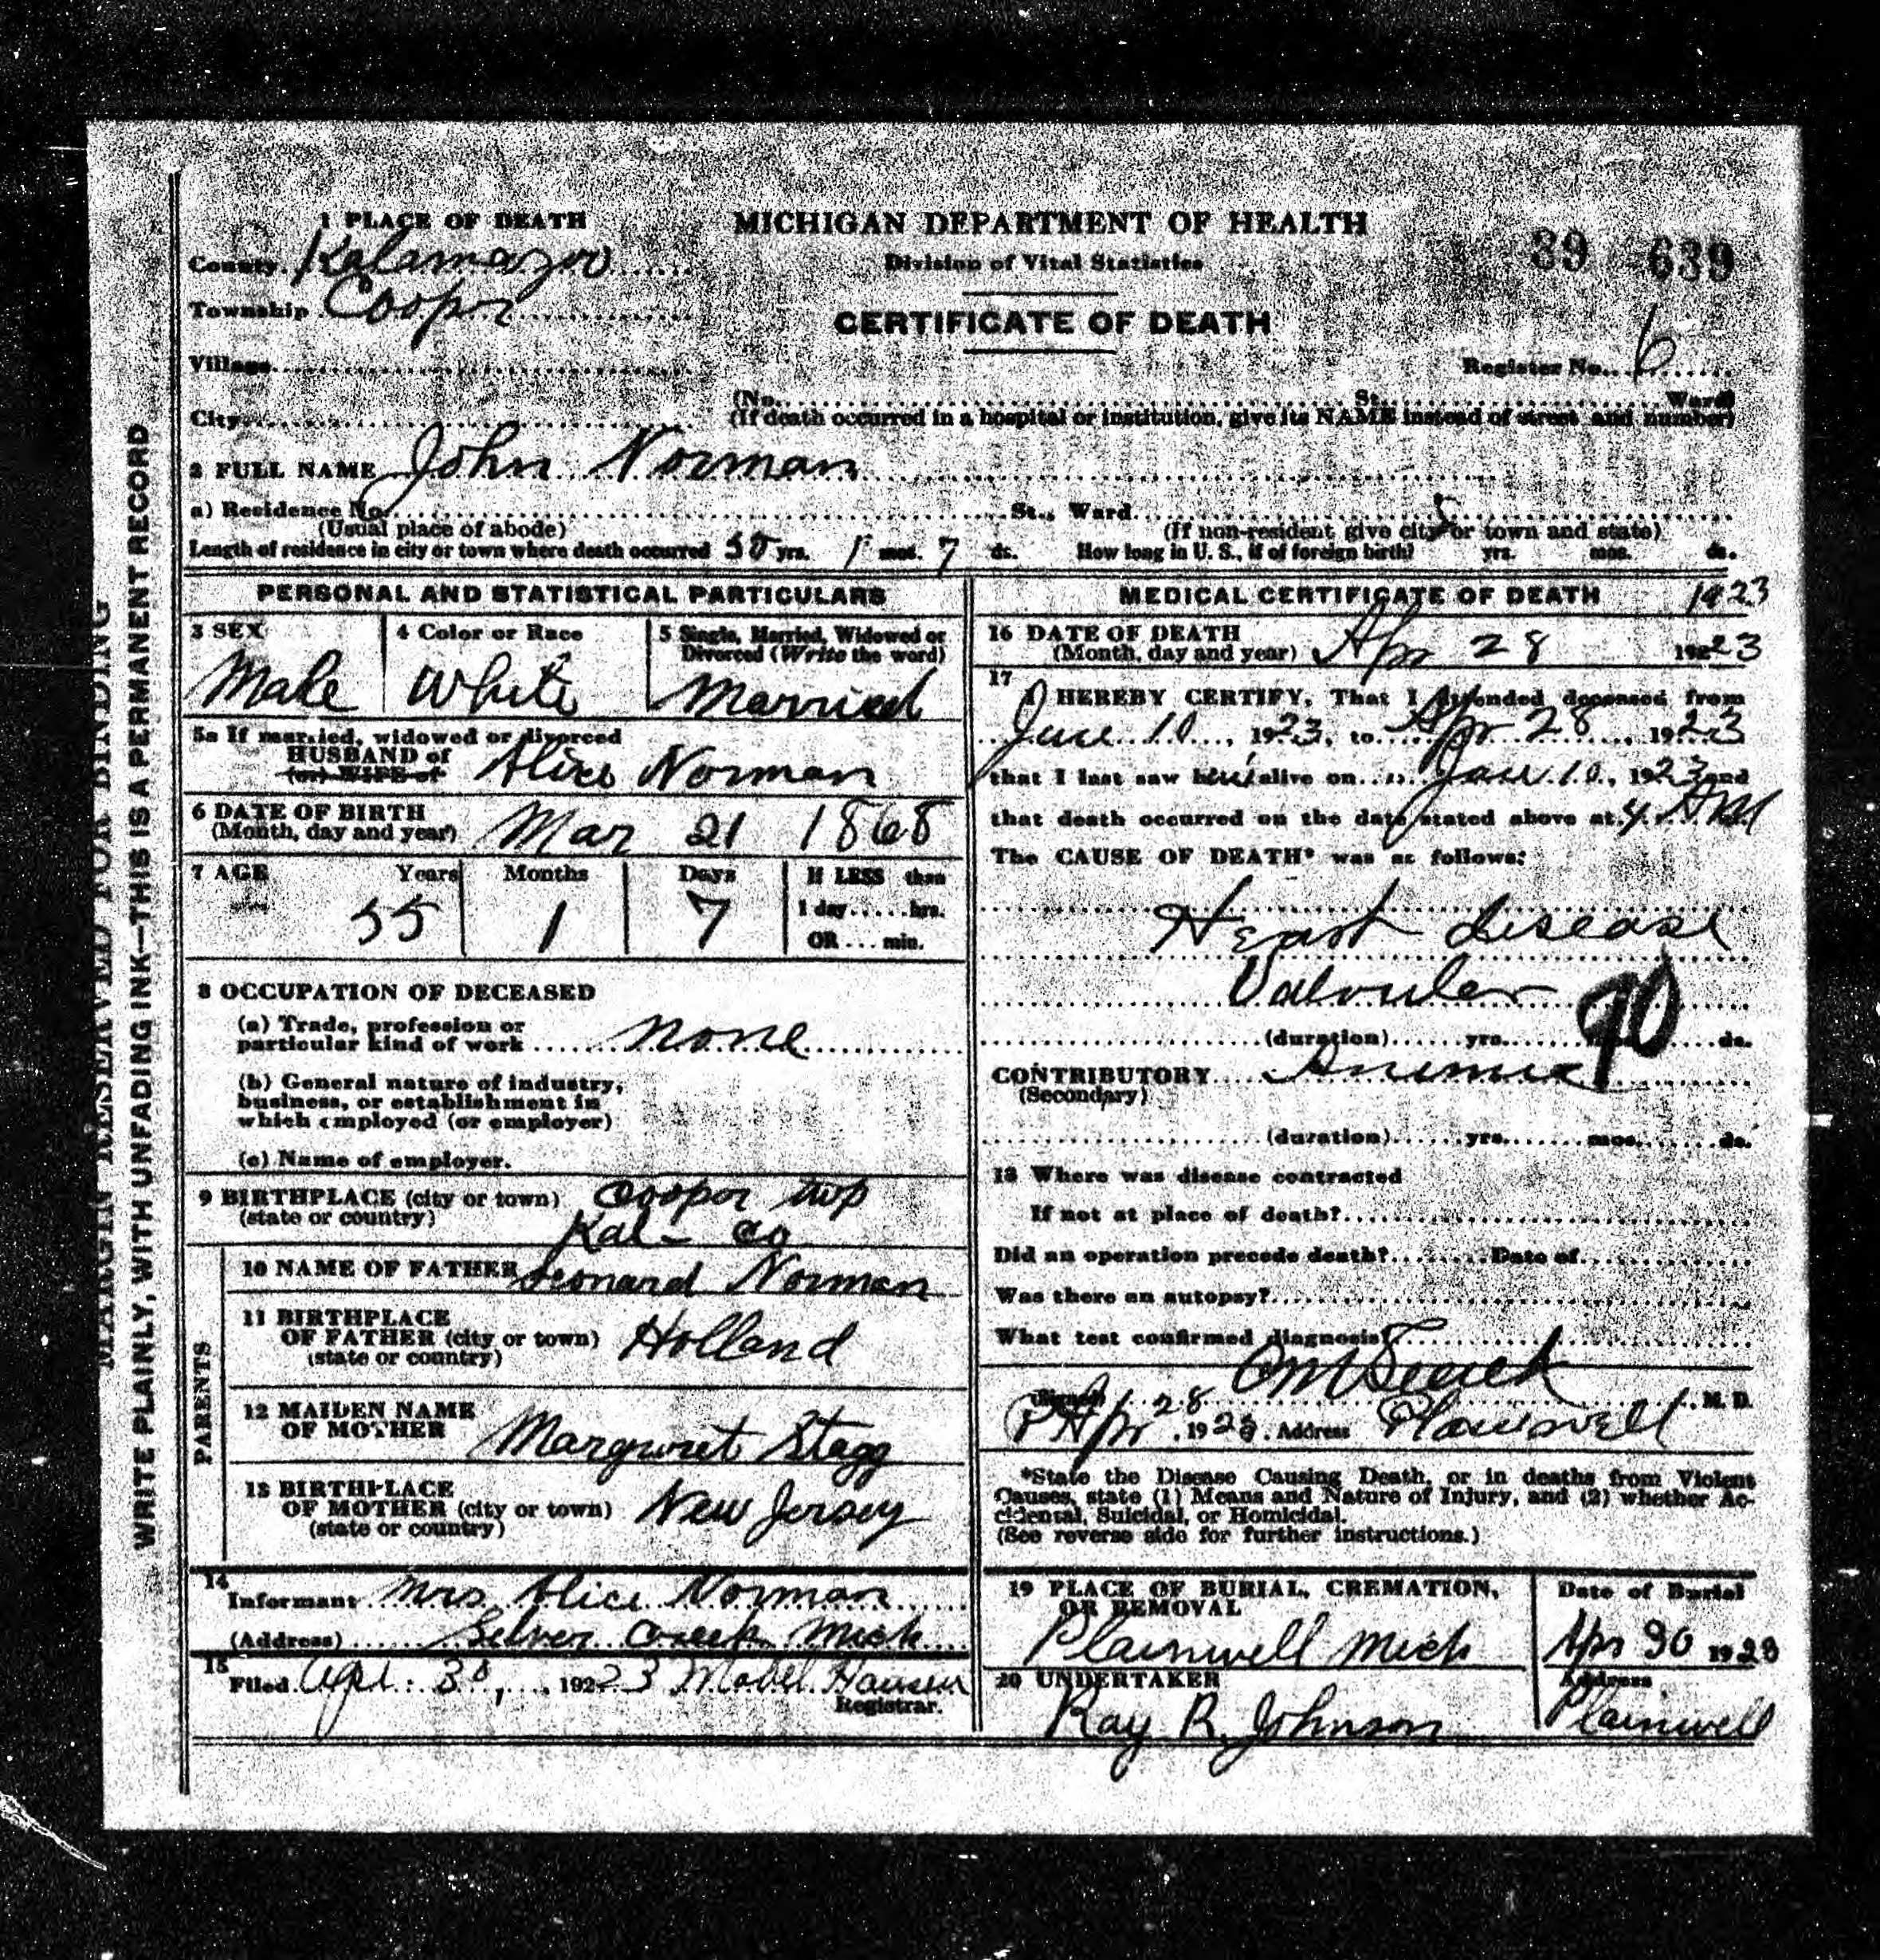 1 PLACE OF DEATH
MICHIGAN DEPARTMENT OF HEALTH
Division of Vital Statistics
39 639
County Kalamazoo
Township Cooper
CERTIFICATE OF DEATH
Village
Register No. 6
City
(No. St. Ward)
(If death occurred in a hospital or institution, give its NAME instead of street and number)
2 FULL NAME John Norman
a) Residence No. St., Ward
(Usual place of abode) (If non-resident give city or town and state)
Length of residence in city or town where death occurred yrs. 1 mos. 7 ds. How long in U. S., if of foreign birth? yrs. mos. ds.
PERSONAL AND STATISTICAL PARTICULARS
3 SEX
Male
4 Color or Race
White
5 Single, Married, Widowed or
Divorced (Write the word)
Married
5a If married, widowed or divorced
HUSBAND of
(or) WIFE of
Alice Norman
6 DATE OF BIRTH
(Month, day and year) Mar 21 1868
7 AGE Years Months Days If LESS than
1 day.....hrs.
OR ... min.
55 1 7
8 OCCUPATION OF DECEASED
(a) Trade, profession or
particular kind of work none
(b) General nature of industry,
business, or establishment in
which employed (or employer)
(c) Name of employer.
9 BIRTHPLACE (city or town) Cooper twp
(state or country) Kal- Co
PARENTS
10 NAME OF FATHER Leonard Norman
11 BIRTHPLACE
OF FATHER (city or town) Holland
(state or country)
12 MAIDEN NAME
OF MOTHER Margaret Stagg
13 BIRTHPLACE
OF MOTHER (city or town) New Jersey
(state or country)
14
Informant Mrs Alice Norman
(Address) Silver Creek Mich
15
Filed Apl. 30, 1923 Mabel Hansen
Registrar.
MEDICAL CERTIFICATE OF DEATH 1923
16 DATE OF DEATH
(Month, day and year) Apr 28 1923
17
I HEREBY CERTIFY, That I attended deceased from
10, 1923, to Apr 28, 1923
that I last saw him alive on 10, 1923 and
that death occurred on the date stated above at 4 AM
The CAUSE OF DEATH* was as follows:
Heart disease
Valvular
90
(duration) yrs. ds.
CONTRIBUTORY Anemia
(Secondary)
(duration) yrs. mos. ds.
18 Where was disease contracted
If not at place of death?
Did an operation precede death? Date of
Was there an autopsy?
What test confirmed diagnosis?
M. D.
Apr 28, 1923. Address Plainwell
*State the Disease Causing Death, or in deaths from Violent
Causes, state (1) Means and Nature of Injury, and (2) whether Ac-
cidental, Suicidal, or Homicidal.
(See reverse side for further instructions.)
19 PLACE OF BURIAL, CREMATION,
OR REMOVAL
Plainwell Mich
Date of Burial
Apr 30 1923
20 UNDERTAKER
Ray R. Johnson
Address
Plainwell
MARGIN RESERVED FOR BINDING
WRITE PLAINLY, WITH UNFADING INK—THIS IS A PERMANENT RECORD